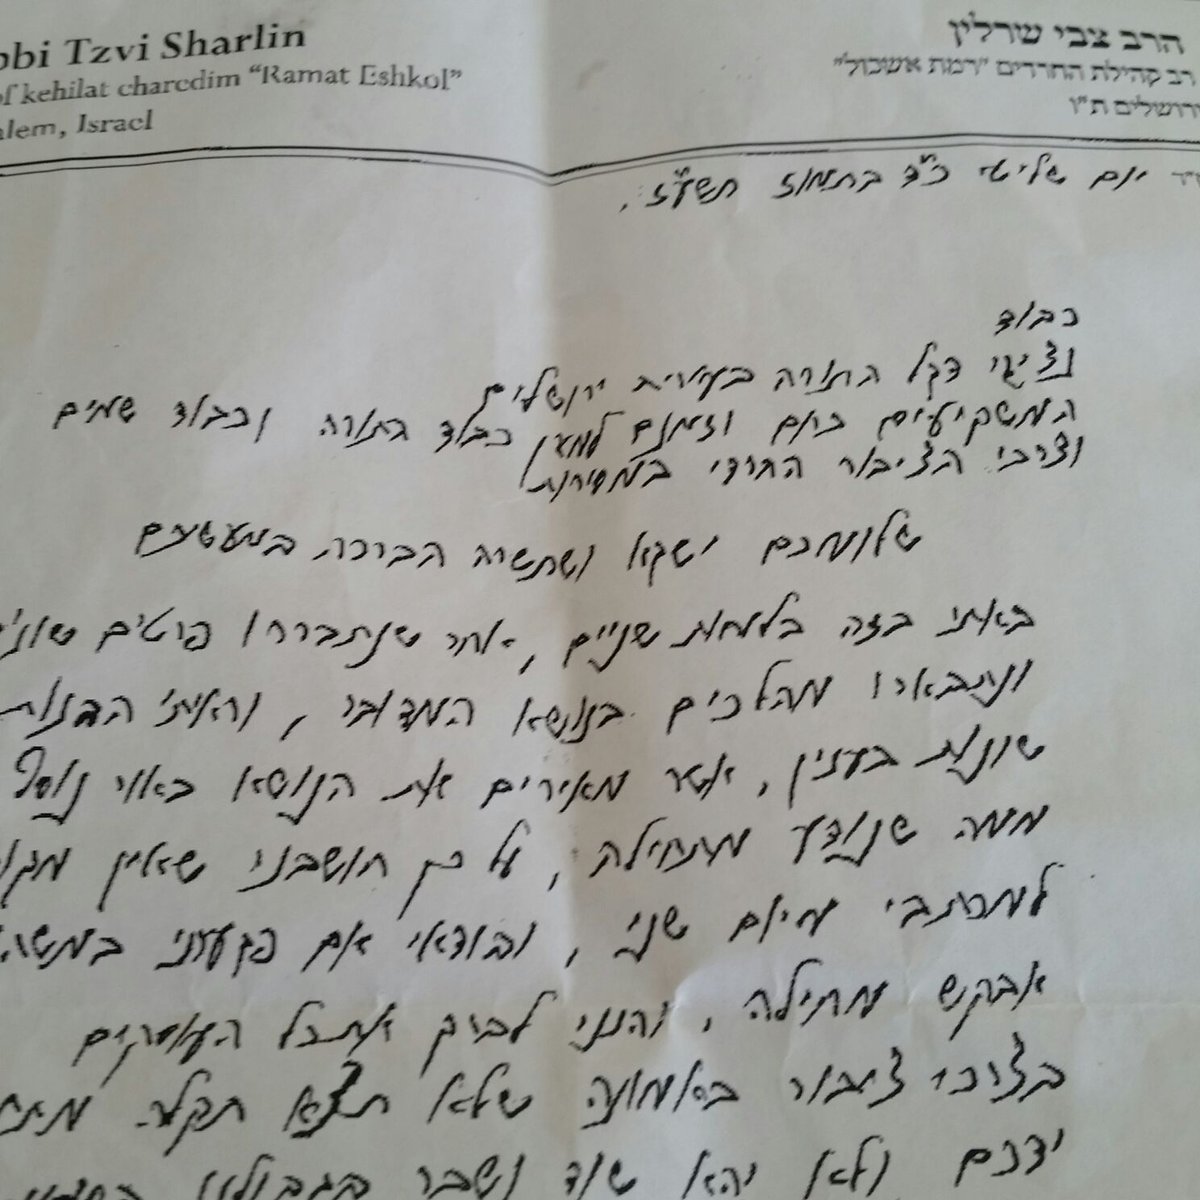 bbi Tzvi Sharlin
of kehilat charedim "Ramat Eshkol"
alem, Israel
הרב צבי שרלין
רב קהילת החרדים "רמת אשכול"
ירושלים ת"ו
יום שלישי כ"ד בתמוז תשע"ז.
כבוד
נציגי דגל התורה בעירית ירושלים
המשקיעים כחם וזמנם למען כבוד התורה וכבוד שמים
וצרכי הציבור החרדי במסירות
שלומכם ישגא ושתשרה הברכה במעשיכם
באתי בזה בלוחות שניים, אחר שנתבררו פרטים שוני
ונתבארו מהלכים בנושא המדובר, וראיתי הבנות
שונות בענין, אשר מאירים את הנושא באור נוסף
ממה שנודע מתחילה, על כן חושבני שאין מקו
למכתבי מיום שני, ובודאי אם פגעתי במשהו
אבקש מחילה, והנני לברך את כל העוסקים
בצרכי ציבור באמונה שלא תצא תקלה מתח
ידכם ולא יהא שוד ושבר בגבולינו